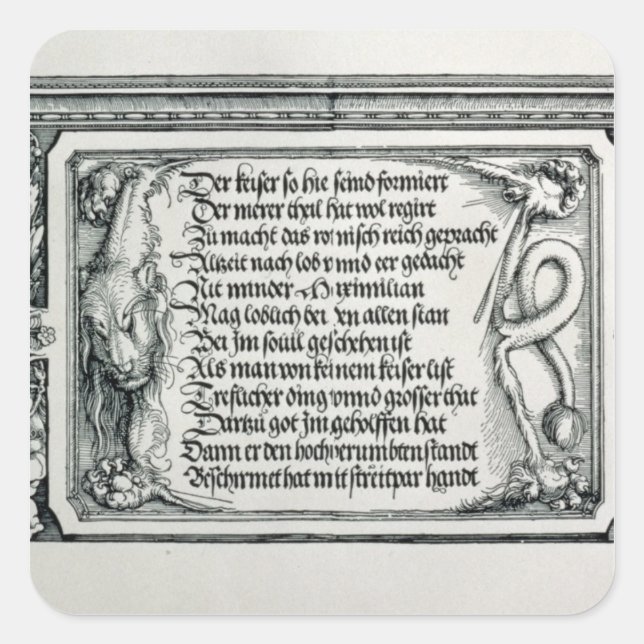 Der keiser so hie seind formiert
Der merer theil hat wol regirt
Zu macht das romisch reich gepracht
Altzeit nach lob vnnd eer gedacht
Nit minder Maximilian
Mag loblich bei den allen stan
Bei Jm souil geschehen ist
Als man von keinem keiser list
Treflicher ding vnnd grosser that
Dartzu got Jm geholffen hat
Dann er den hochberumbten standt
Beschirmet hat mit streitpar handt